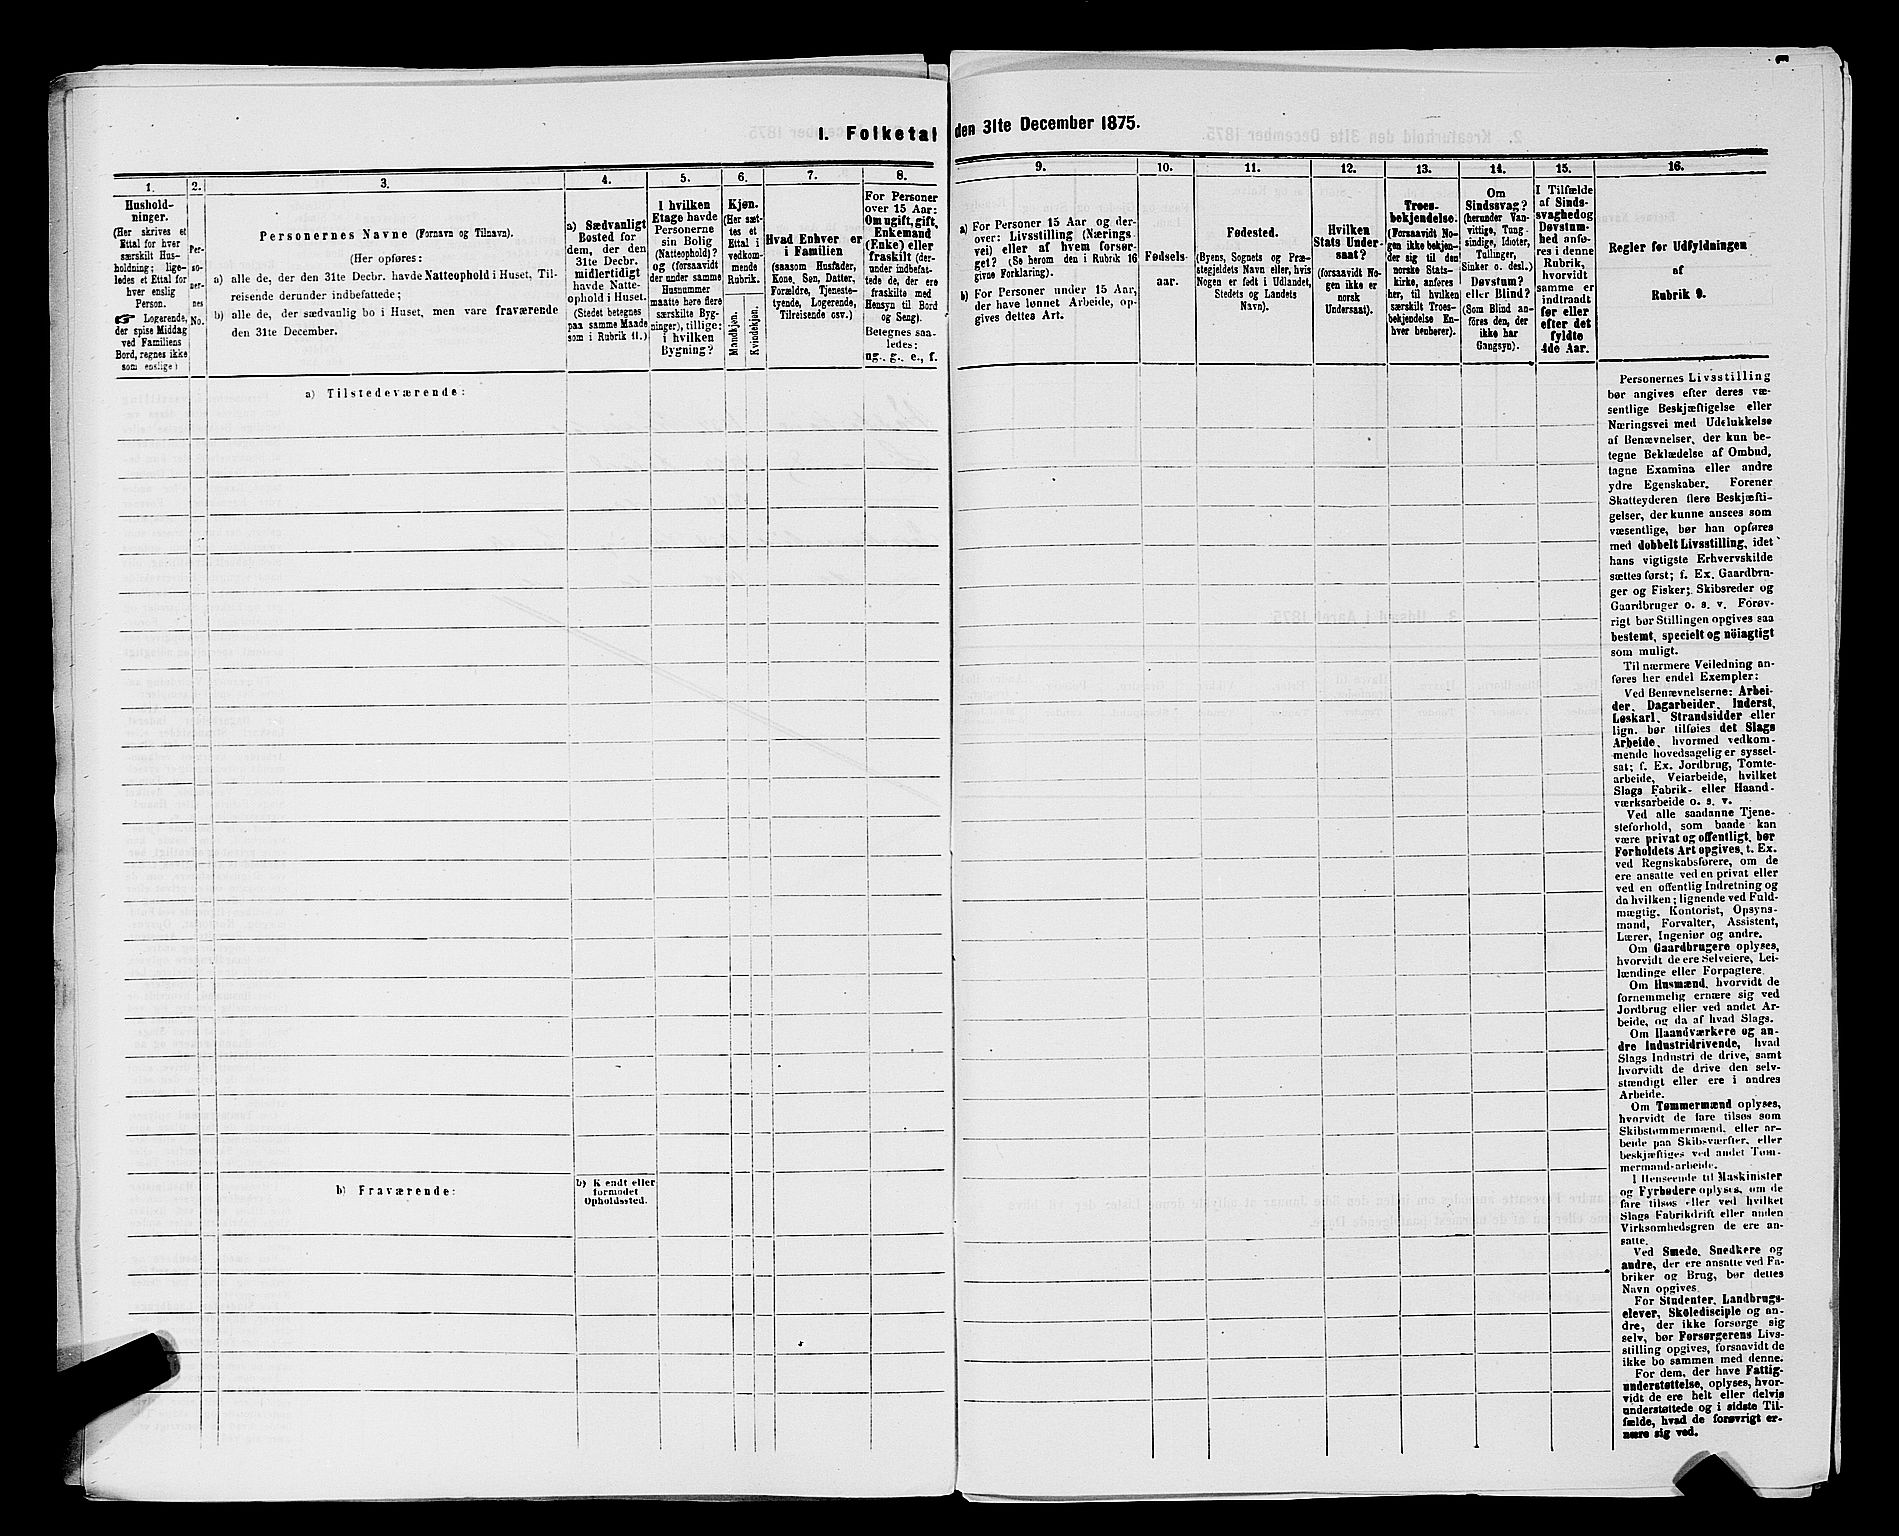 1. Folketal den 31te December 1875.
1.
Hushold-
ninger.
(Her skrives et
Ettal for hver
særskilt Hus-
holdning; lige-
ledes et Ettal for
hver enslig
Person.
☞ Logerende,
der spise Middag
ved Familiens
Bord, regnes ikke
som enslige)
2.
Per-
so-
ner-
nes
No.
3.
Personernes Navne (Fornavn og Tilnavn).
(Her opføres:
a) alle de, der den 31te Decbr. havde Natteophold i Huset, Til-
reisende derunder indbefattede;
b) alle de, der sædvanlig bo i Huset, men vare fraværende
den 31te December.
4.
a) Sædvanligt
Bosted for
dem, der den
31te Decbr.
midlertidigt
havde Natte-
ophold i Huset.
(Stedet betegnes
paa samme Maade
som i Rubrik 11.)
5.
I hvilken
Etage havde
Personerne
sin Bolig
(Natteophold)?
og (forsaavidt
der under samme
Husnummer
maatte høre flere
særskilte Byg-
ninger), tillige:
i hvilken
Bygning?
6.
Kjøn.
(Her sæt-
tes et
Ettal i
vedkom-
mende
Rubrik.
Mandkjøn.
Kvindekjøn.
7.
Hvad Enhver er
i Familien
(saasom Husfader,
Kone, Søn, Datter,
Forældre, Tjeneste-
tyende, Logerende,
Tilreisende osv.)
8.
For Personer
over 15 Aar:
Om ugift, gift,
Enkemand
(Enke) eller
fraskilt (der-
under indbefat-
tede de, der ere
fraskilte med
Hensyn til Bord
og Seng).
Betegnes saa-
ledes:
ug., g., e., f.
9.
a) For Personer 15 Aar og der-
over: Livsstilling (Nærings
vei) eller af hvem forsør-
get? (Se herom den i Rubrik 16
givne Forklaring).
b) For Personer under 15 Aar,
der have lønnet Arbeide, op-
gives dettes Art.
10.
Fødsels-
aar.
11.
Fødested.
(Byens, Sognets og Præ-
stegjeldets Navn eller, hvis
Nogen er født i Udlandet,
Stedets og Landets
Navn).
12.
Hvilken
Stats Under-
saat?
(forsaavidt No-
gen ikke er
norsk
Undersaat).
13.
Troes-
bekjendelse.
(Forsaavidt No-
gen ikke bekjen-
der sig til den
norske Stats-
kirke, anføres
her, til hvilken
særskilt Troes-
bekjendelse En-
hver benhører).
14.
Om
Sindssvag?
(herunder Van-
vittige, Tung-
sindige, Idioter,
Tullinger,
Sinker o. desl.)
Døvstum?
eller Blind?
(Som Blind an-
føres den, der
ikke har
Gangsyn).
15.
I Tilfælde
af Sinds-
svaghed og
Døvstum-
hed anfø-
res i denne
Rubrik,
hvorvidt
samme er
indtraadt
før eller
efter det
fyldte
4de Aar.
16.
Regler for Udfyldningen
af
Rubrik 9.
a) Tilstedeværende:
b) Fraværende:
b) Kjendt eller
formodet
Opholdssted.
Personernes Livsstilling
bør angives efter deres væ-
sentlige Beskjæftigelse eller
Næringsvei med Udelukkelse
af Benævnelser, der kun be-
tegne Beklædelse af Ombud,
tagne Examina eller andre
ydre Egenskaber. Forener
Skatteyderen flere Beskjæfti-
gelser, der kunne ansees som
væsentlige, bør han opføres
med dobbelt Livsstilling, idet
hans vigtigste Erhvervskilde
sættes først; f. Ex. Gaardbru-
ger og Fisker; Skibsreder og
Gaardbruger o. s. v. Forøv-
rigt bør Stillingen opgives saa
bestemt, specielt og nöiagtigt
som muligt.
Til nærmere Veiledning an-
føres her endel Exempler:
Ved Benævnelserne: Arbei-
der, Dagarbeider, Inderst,
Løskarl, Strandsidder eller
lign. bør tilføies det Slags
Arbeide, hvormed vedkom-
mende hovedsagelig er syssel-
sat; f. Ex. Jordbrug, Tomte-
arbeide, Veiarbeide, hvilket
Slags Fabrik- eller Haand-
værksarbeide o. s. v.
Ved alle saadanne Tjene-
steforhold, som baade kan
være privat og offentligt, bør
Forholdets Art opgives, t. Ex.
ved Regnskabsførere, om de
ere ansatte ved en privat eller
ved en offentlig Indretning og
da hvilken; lignende ved Fuld-
mægtig, Kontorist, Opsyns-
mand, Forvalter, Assistent,
Lærer, Ingeniør og andre.
Om Gaardbrugere oplyses,
hvorvidt de ere Selveiere, Lei-
lændinge eller Forpagtere.
Om Husmænd, hvorvidt de
fornemmelig ernære sig ved
Jordbrug eller ved andet Ar-
beide, og da af hvad Slags.
Om Haandværkere og an-
dre Industridrivende, hvad
Slags Industri de drive, samt
hvorvidt de drive den selv-
stændigt eller ere i andres
Arbeide.
Om Tømmermænd oplyses,
hvorvidt de fare tilsøs som
Skibstømmermænd, eller ar-
beide paa Skibsværfter, eller
beskjæftiges ved andet Tøm-
mermand-arbeide.
I Henseende til Maskinister
og Fyrbødere oplyses, om de
fare tilsøs eller ved hvilket
Slags Fabrikdrift eller anden
Virksomhedsgren de ere an-
satte.
Ved Smede, Snedkere og
andre, der ere ansatte ved Fa-
briker og Brug, bør dettes
Navn opgives.
For Studenter, Landbrugs-
elever, Skoledisciple og an-
dre, der ikke forsørge sig
selv, bør Forsørgerens Livs-
stilling opgives, forsaavidt de
ikke bo sammen med denne.
For dem, der have Fattig-
understøttelse, oplyses, hvor-
vidt de ere helt eller delvis
understøttede og i sidste Til-
fælde, hvad de forøvrigt er-
nære sig ved.